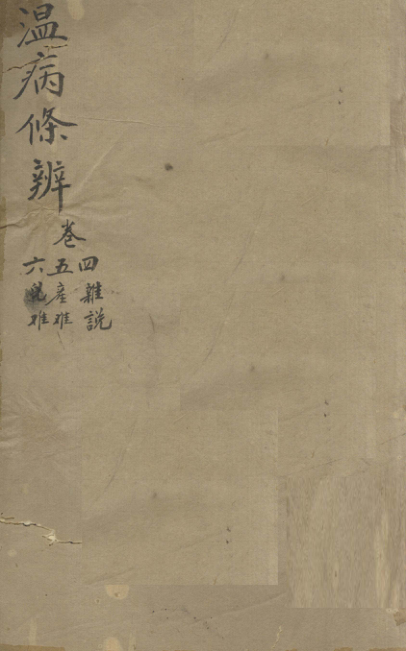 温病條辨
卷
四雜說
五産难
六兒难